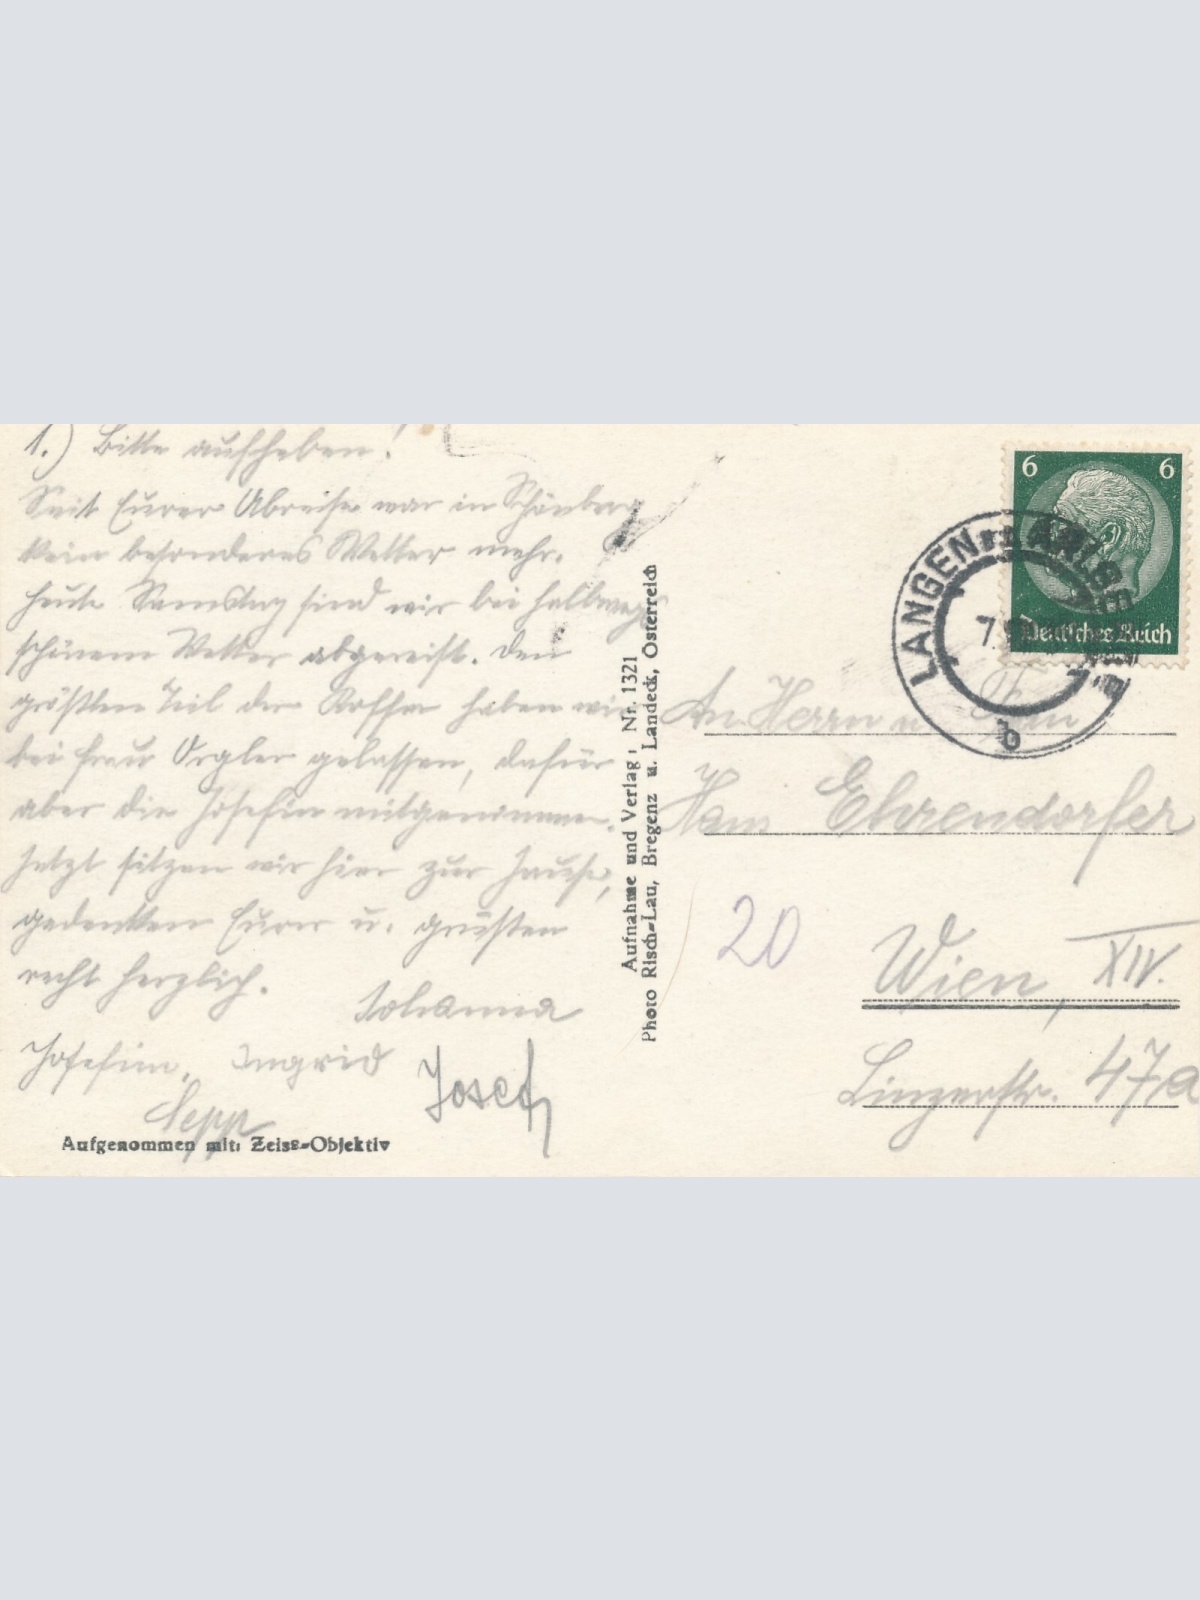 1.) Bitte aufheben!
Seit Eurer Abreise war in Schönberg
kein besonderes Wetter mehr.
Heute Samstag sind wir bei halbwegs
schönem Wetter abgereist. Den
größten Teil der Koffer haben wir
bei Frau Orgler gelassen, dafür
aber die Josefin mitgenommen.
Jetzt sitzen wir hier zur Jause,
gedenken Eurer u. grüßen
recht herzlich.
Johanna
Josefine, Ingrid
Josef
Sepp
Aufgenommen mit: Zeiss-Objektiv
Aufnahme und Verlag: Nr. 1321
Photo Risch-Lau, Bregenz u. Landeck, Österreich
6 6
Deutsches Reich
LANGEN ARLBERG
7.
b
An Herrn u. Frau
Ehrendorfer
20
Wien, XIV.
Linzerstr. 47a